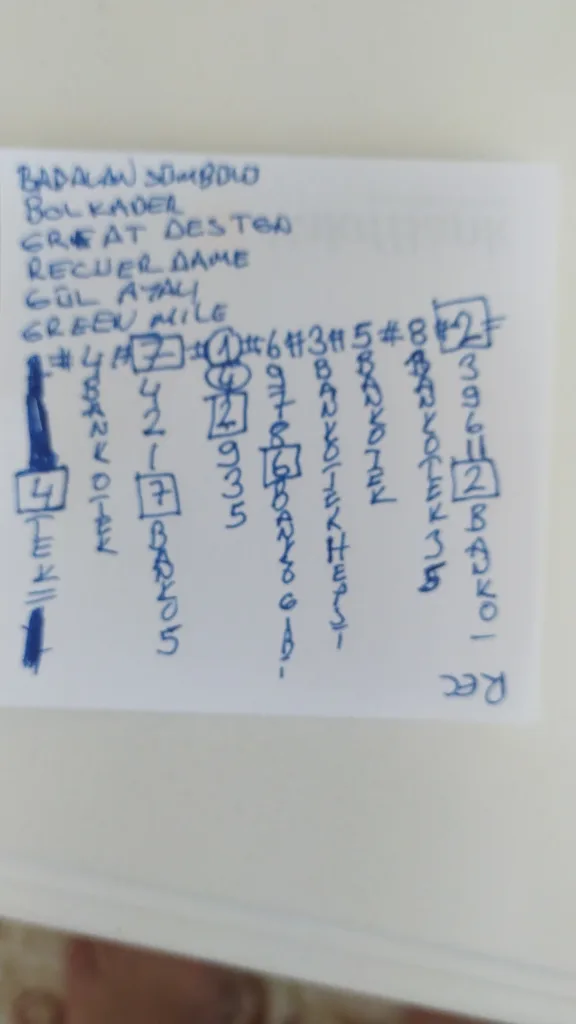 BADALAN SÜMBÜLÜ
BOLKADER
GREAT DESTGA
RECUER DAME
GÜL AYAU
GREEN MILE
# 4 # 7 # 1 # 6 # 3 # 5 # 8 # 2 =
4 TEK =
BANKO TEK
4 2 1 7 BANKO 5
4 2 9 3 5
9 7 8 6 BANKO GİBİ
BANKO TEK HEPSİ
BANKO TEK
BANKO TEK 3 5
3 9 6 11 2 BANKO 1
REC